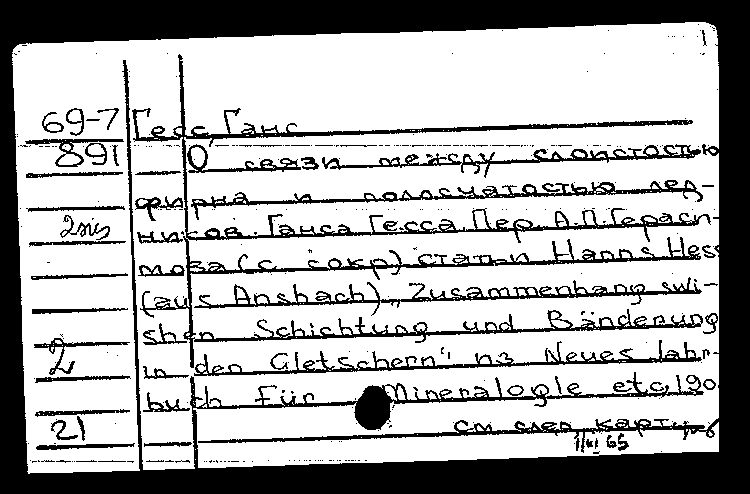 1
69-7 Гесс, Ганс
891 О связи между слоистостью
фирна и полосчатостью лед-
ников. Ганса Гесса. Пер. А.П. Гераси-
мова (с сокр) статьи Hanns Hess
(aus Ansbach) „Zusammenhang swi-
shen Schichtung und Bänderung
2 in den Gletschern" из Neues Jahr-
buch für Mineralogie etc, 190
21 см след карт
65